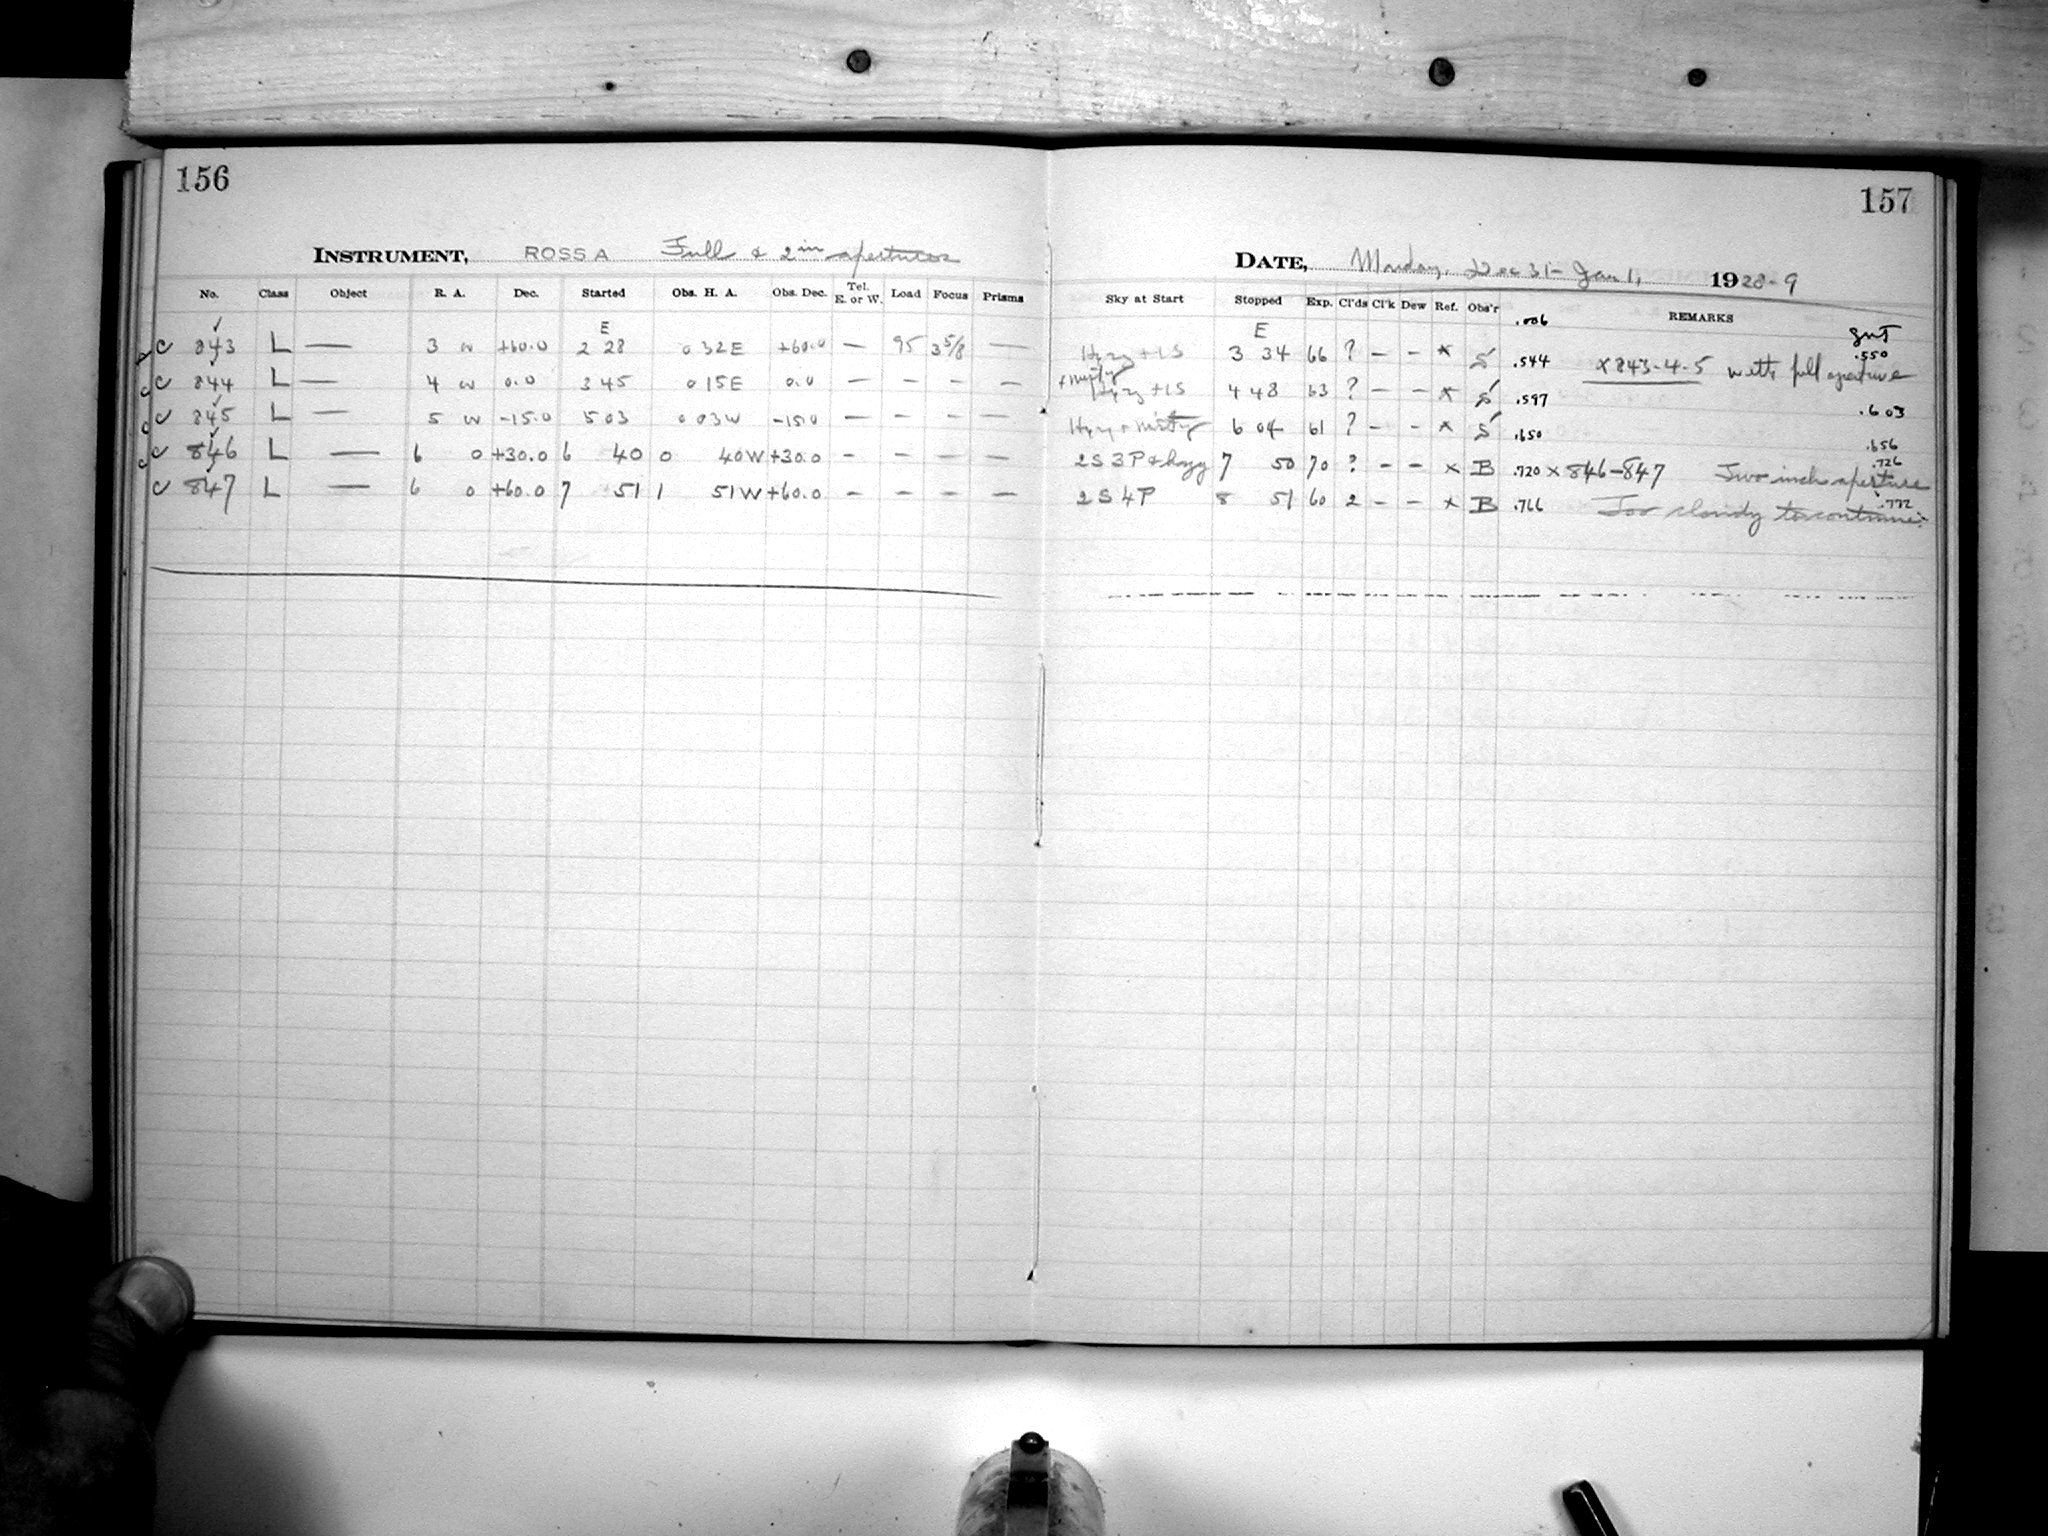 156
INSTRUMENT, ROSS A Full & 2 in apertures
No. Class Object R. A. Dec. Started Obs. H. A. Obs. Dec. Tel. E. or W. Load Focus Prisms
E
C 843 L — 3 0 +60.0 2 28 0 32 E +60.0 — 95 3 5/8 —
C 844 L — 4 0 0.0 3 45 0 15 E 0.0 — — — —
C 845 L — 5 0 -15.0 5 03 0 03 W -15.0 — — — —
C 846 L — 6 0 +30.0 6 40 0 40 W +30.0 — — — —
C 847 L — 6 0 +60.0 7 51 1 51 W +60.0 — — — —
157
DATE, Monday, Dec 31 - Jan 1, 1928-9
Sky at Start Stopped Exp. Cl'ds Cl'k Dew Ref. Obs'r REMARKS
.006
E GMT
Hazy + 1S 3 34 66 ? — — x S .544 x 843-4-5 with full aperture .550
+ misty
Hazy + 1S 4 48 63 ? — — x S .597 .603
Hazy + misty 6 04 61 ? — — x S .650 .656
2S 3P & hazy 7 50 70 ? — — x B .720 x 846-847 Two inch aperture .726
2S 4P 8 51 60 2 — — x B .766 Too cloudy to continue. .772